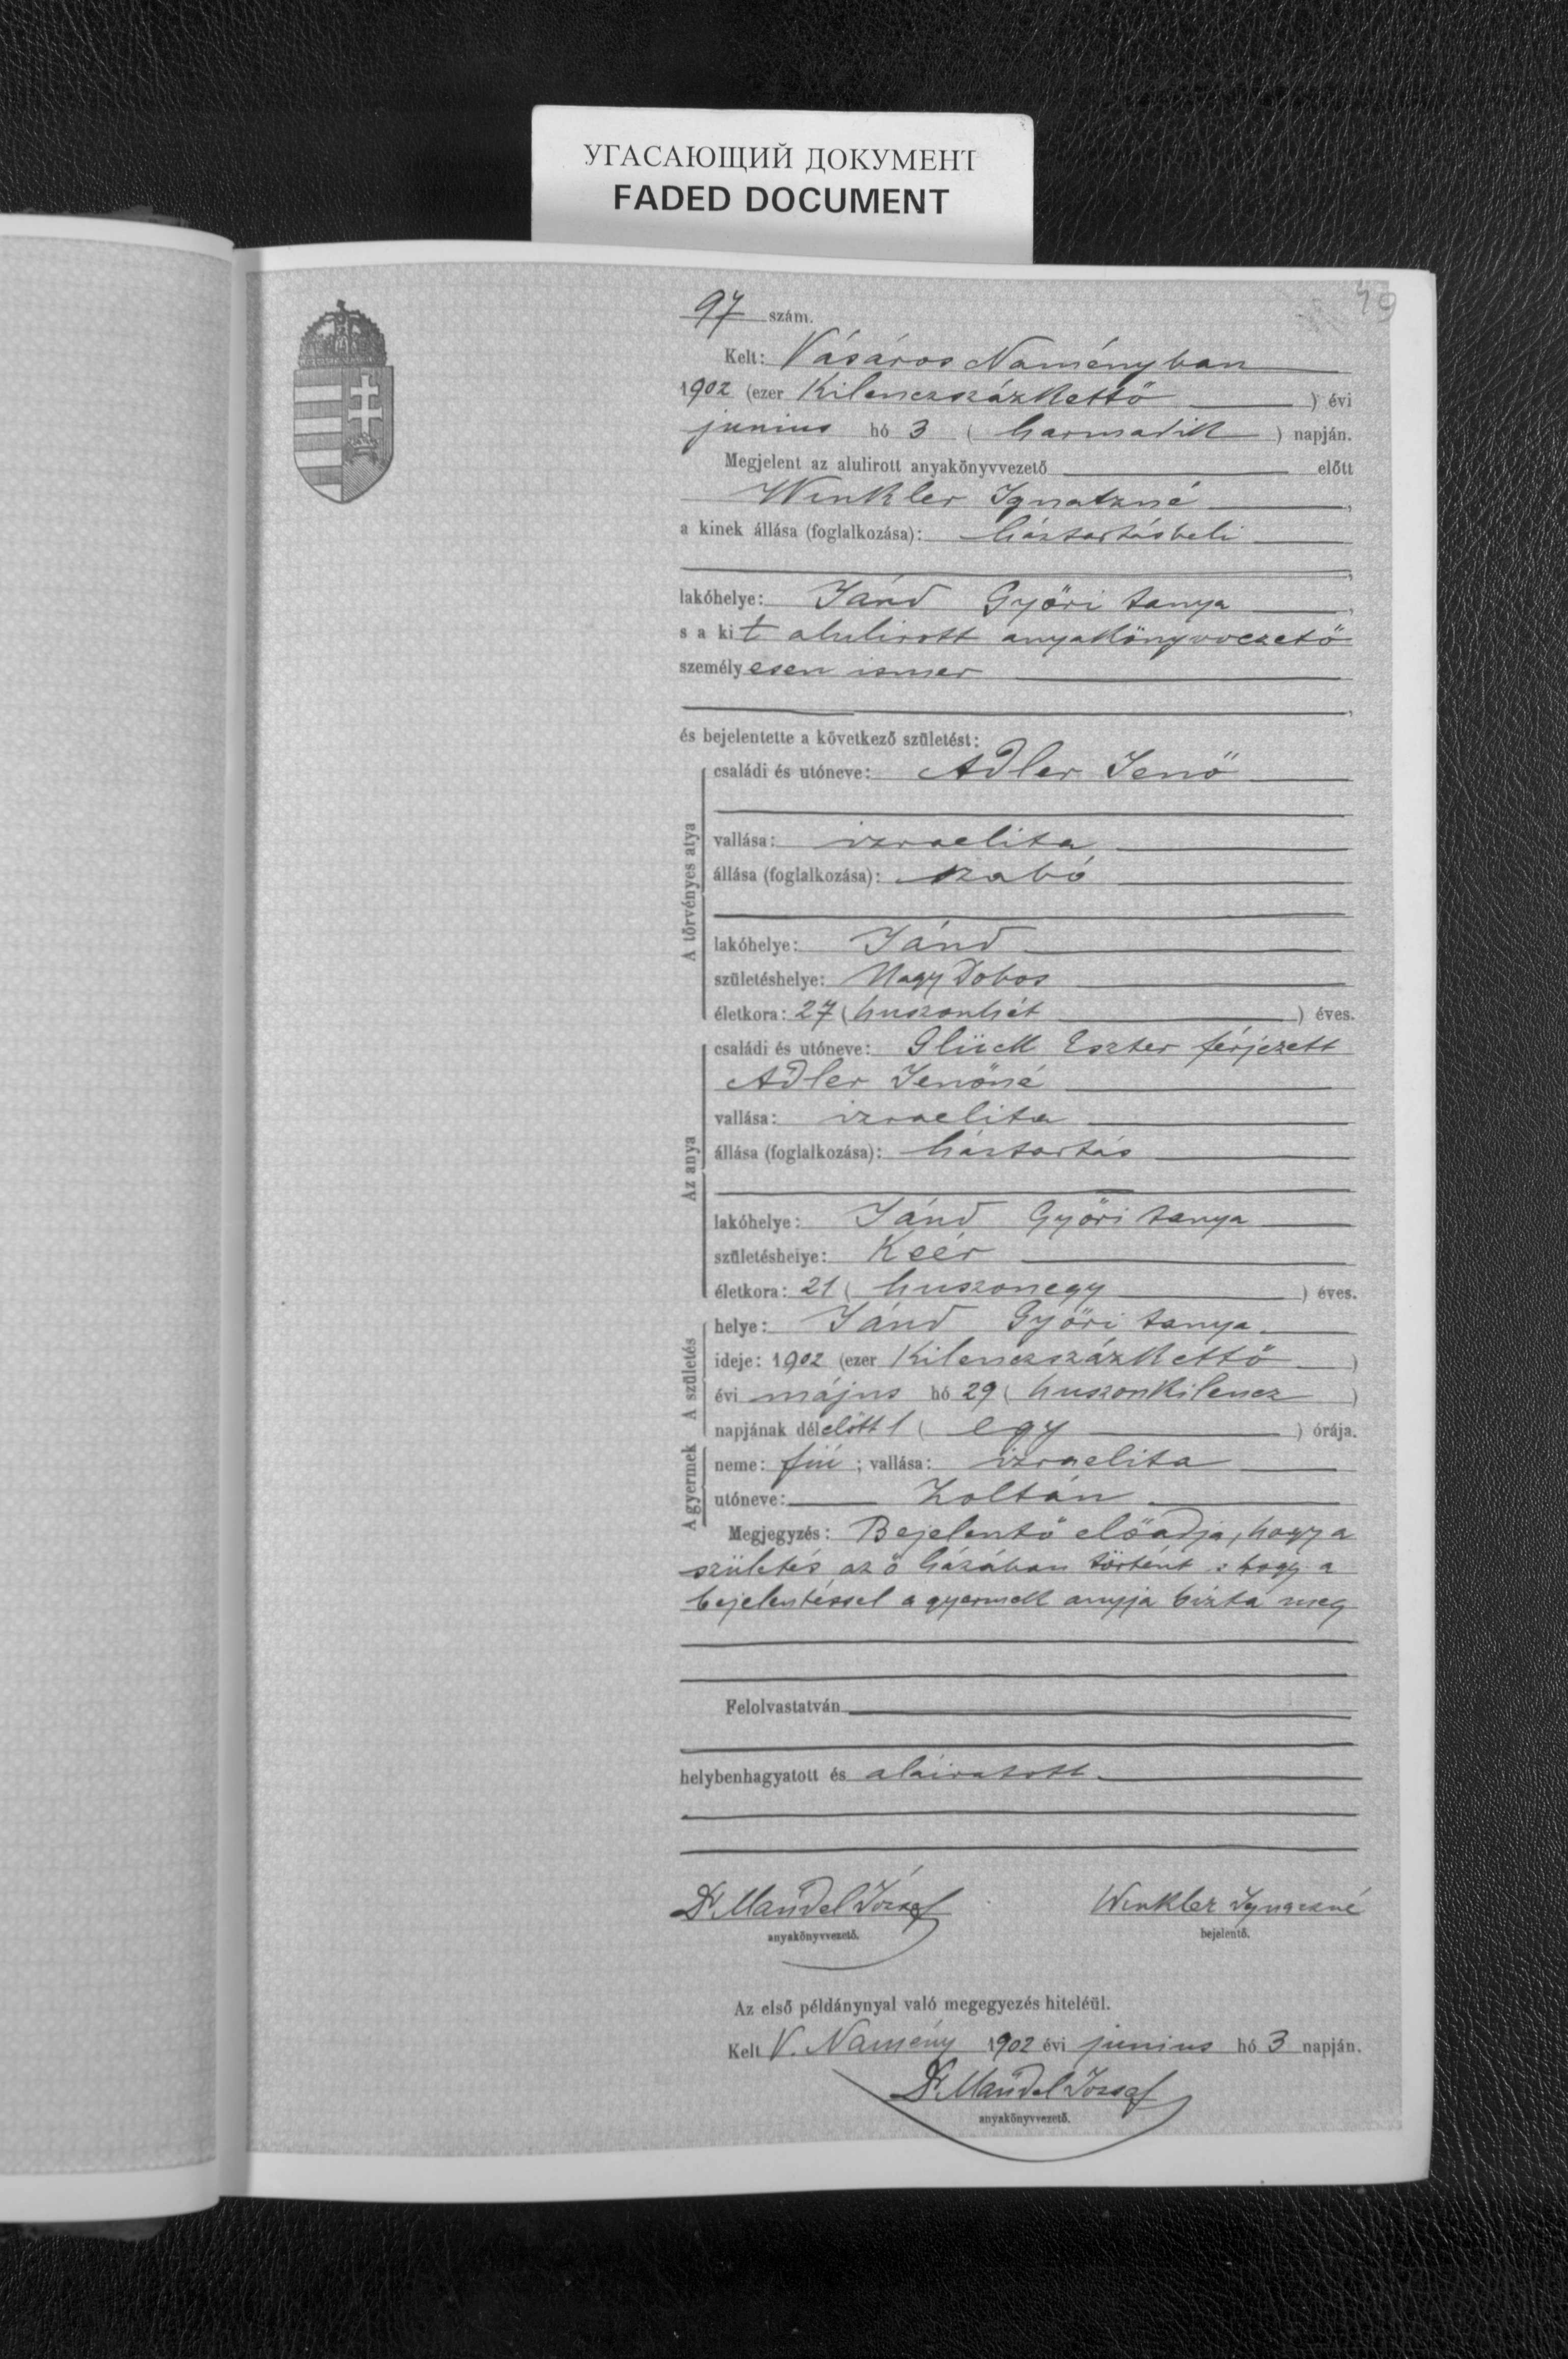 УГАСАЮЩИЙ ДОКУМЕНТ
FADED DOCUMENT
49
97 szám.
Kelt: Vásáros Naményban
1902 (ezer Kilenczszázkettő ) évi
junius hó 3 ( harmadik ) napján.
Megjelent az alulirott anyakönyvvezető előtt
Winkler Ignatzné ,
a kinek állása (foglalkozása): háztartásbeli
,
lakóhelye: Jánd Győri tanya ,
s a kit alulirott anyakönyvvezető
személyesen ismer
,
és bejelentette a következő születést:
A törvényes atya
családi és utóneve: Adler Jenő
vallása: izraelita
állása (foglalkozása): szabó
lakóhelye: Jánd
születéshelye: Nagy Dobos
életkora: 27 ( huszonhét ) éves.
Az anya
családi és utóneve: Glück Eszter férjezett
Adler Jenőné
vallása: izraelita
állása (foglalkozása): háztartás
lakóhelye: Jánd Győri tanya
születéshelye: Keér
életkora: 21 ( huszonegy ) éves.
A születés
helye: Jánd Győri tanya
ideje: 1902 (ezer Kilenczszázkettő )
évi május hó 29 ( huszonkilencz )
napjának délelőtt 1 ( egy ) órája.
A gyermek
neme: fiú ; vallása: izraelita
utóneve: Zoltán
Megjegyzés: Bejelentő előadja, hogy a
születés az ő házában történt : hogy a
bejelentéssel a gyermek anyja bízta meg
Felolvastatván
helybenhagyatott és aláiratott.
Dr Mandel József Winkler Ignaczné
anyakönyvvezető. bejelentő.
Az első példánynyal való megegyezés hiteléül.
Kelt V. Namény 1902 évi junius hó 3 napján.
Dr Mandel József
anyakönyvvezető.